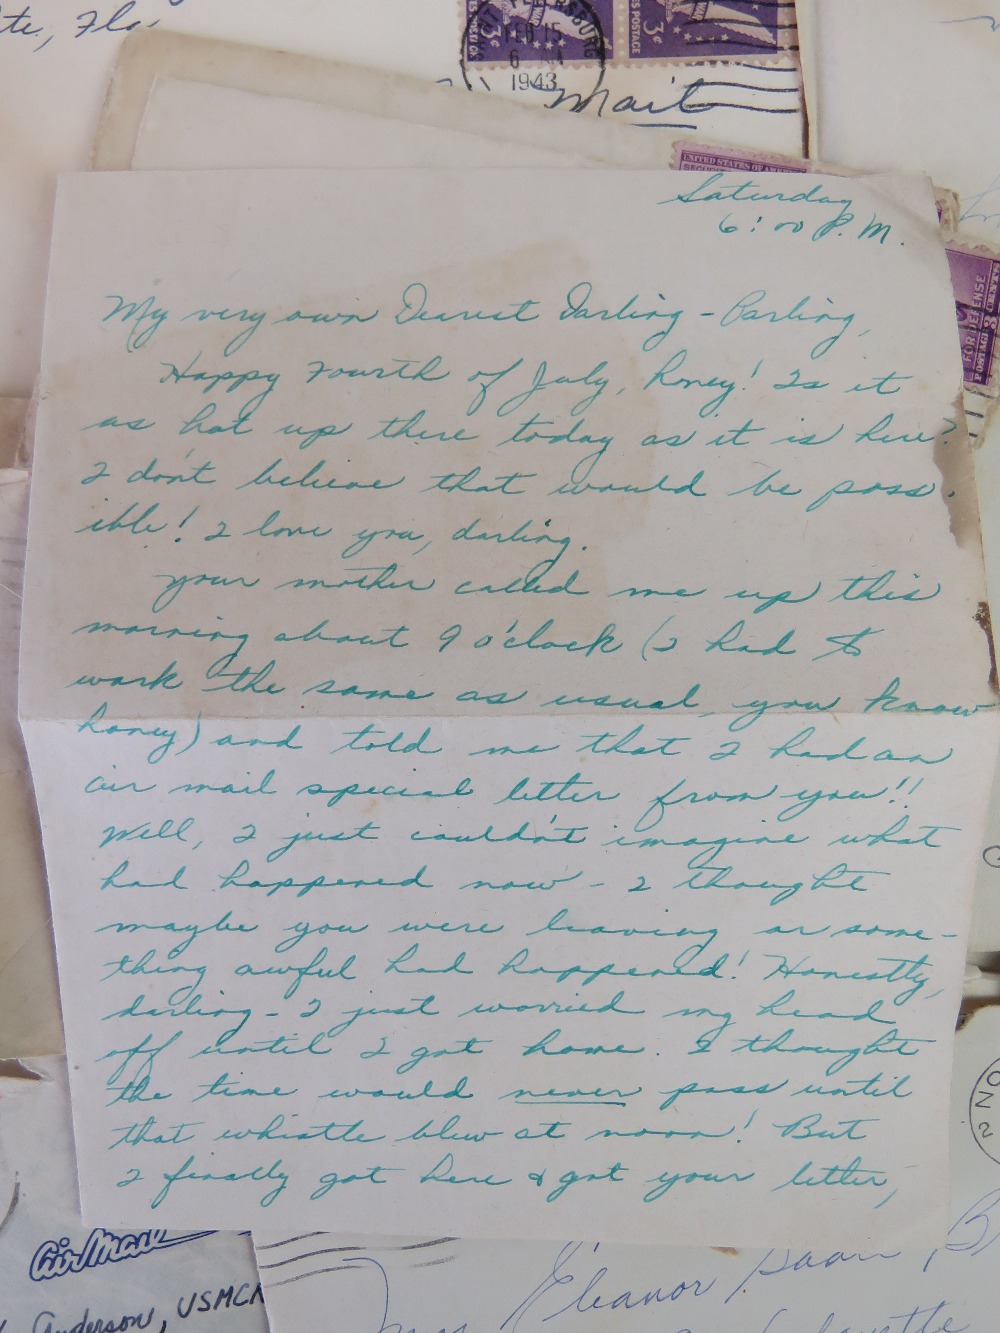 te, Fla.
SAINT PETERSBURG
FEB 15
6
1943
3¢
3¢
WAR
ES POSTAGE
Mail
UNITED STATES OF
FOR DEFENSE
POSTAGE
Saturday
6:00 P.M.
My very own Dearest Darling - Darling,
Happy Fourth of July, honey! Is it
as hot up there today as it is here?
I don't believe that would be poss-
ible! I love you, darling.
Your mother called me up this
morning about 9 o'clock (I had to
work the same as usual, you know
honey) and told me that I had an
air mail special letter from you!!
Well, I just couldn't imagine what
had happened now - I thought
maybe you were leaving or some-
thing awful had happened! Honestly,
darling - I just worried my head
off until I got home. I thought
the time would never pass until
that whistle blew at noon! But
I finally got here & got your letter,
Air Mail
Anderson, USMCR
Eleanor
NO
2